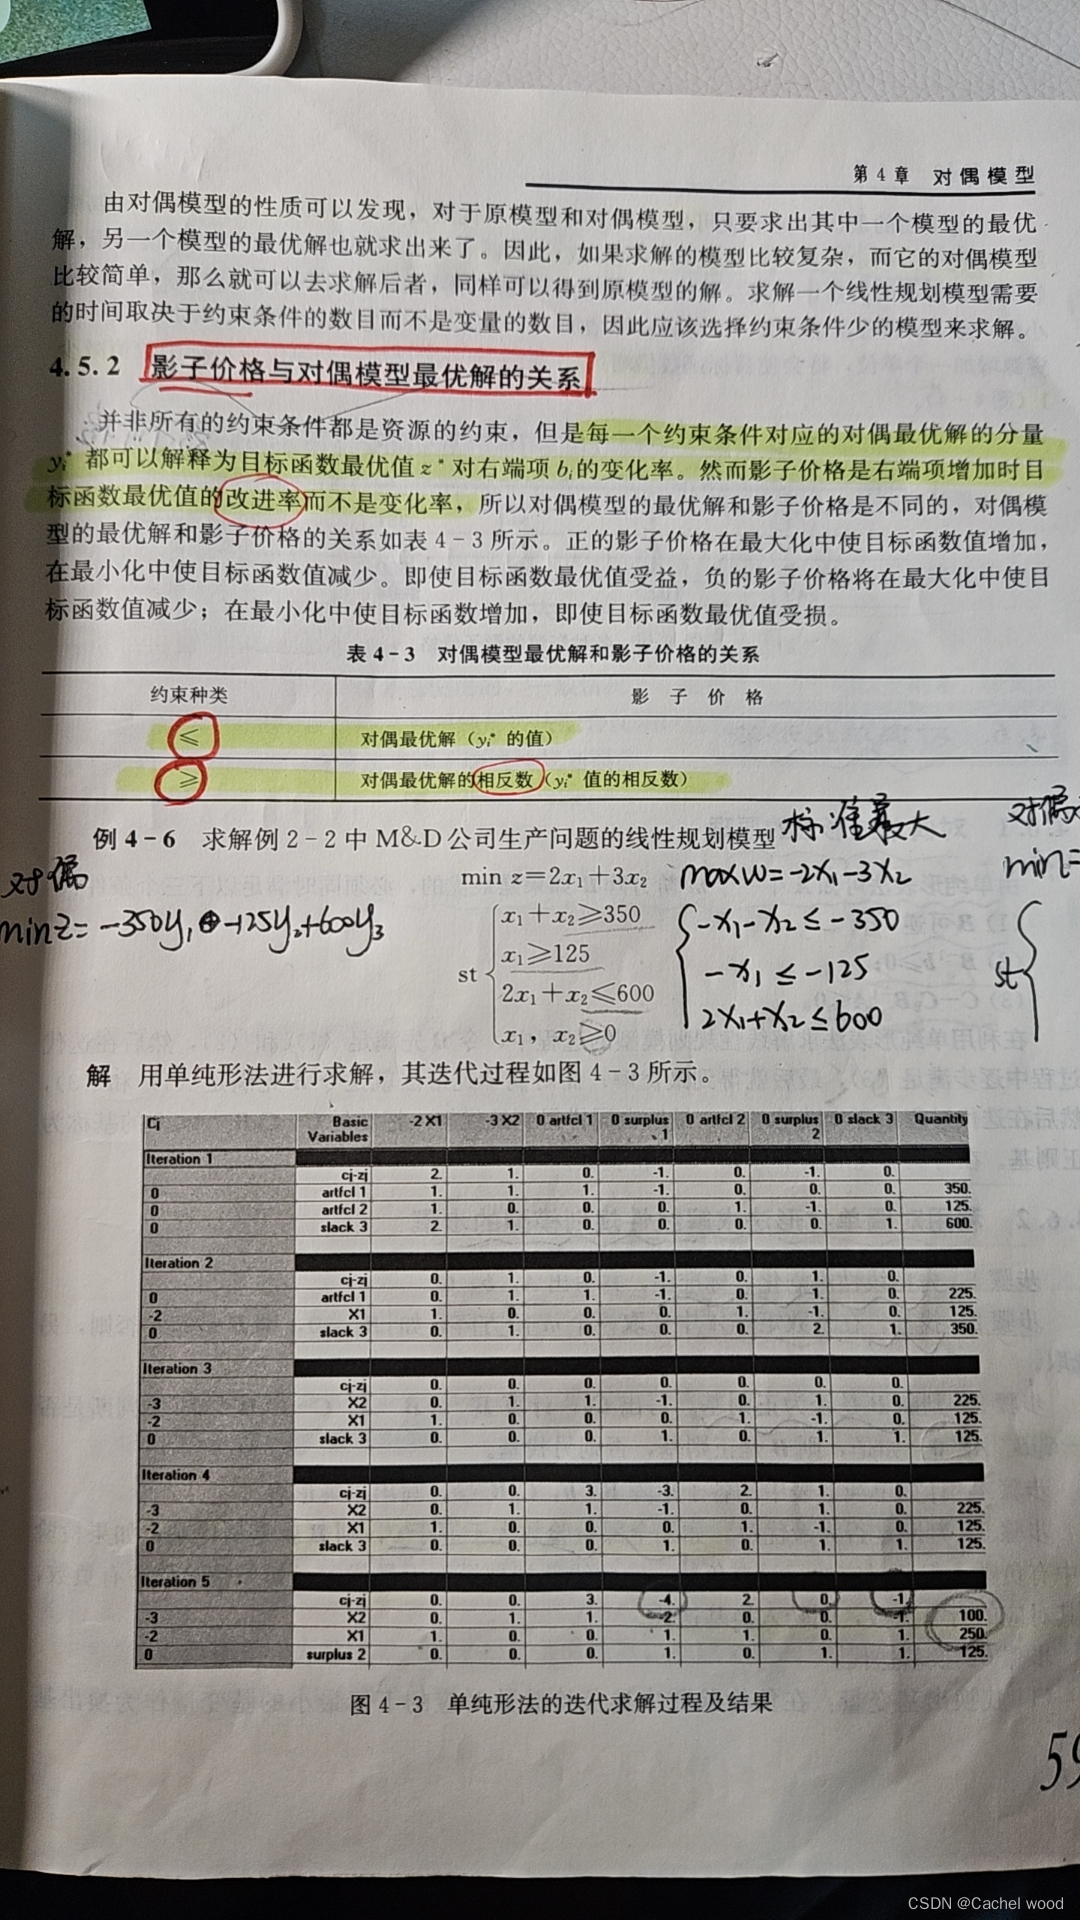 第 4 章 对偶模型
由对偶模型的性质可以发现，对于原模型和对偶模型，只要求出其中一个模型的最优
解，另一个模型的最优解也就求出来了。因此，如果求解的模型比较复杂，而它的对偶模型
比较简单，那么就可以去求解后者，同样可以得到原模型的解。求解一个线性规划模型需要
的时间取决于约束条件的数目而不是变量的数目，因此应该选择约束条件少的模型来求解。
4.5.2 影子价格与对偶模型最优解的关系
并非所有的约束条件都是资源的约束，但是每一个约束条件对应的对偶最优解的分量
yᵢ* 都可以解释为目标函数最优值 z* 对右端项 bᵢ的变化率。然而影子价格是右端项增加时目
标函数最优值的改进率而不是变化率，所以对偶模型的最优解和影子价格是不同的，对偶模
型的最优解和影子价格的关系如表 4-3 所示。正的影子价格在最大化中使目标函数值增加，
在最小化中使目标函数值减少。即使目标函数最优值受益，负的影子价格将在最大化中使目
标函数值减少；在最小化中使目标函数增加，即使目标函数最优值受损。
表 4-3 对偶模型最优解和影子价格的关系
约束种类 影 子 价 格
≤ 对偶最优解（yᵢ* 的值）
≥ 对偶最优解的相反数（yᵢ* 值的相反数）
例 4-6 求解例 2-2 中 M&D 公司生产问题的线性规划模型 标准最大 对偶
对偶
min z=2x₁+3x₂ max w=-2x₁-3x₂ min z=
min z= -350y₁ -125y₂+600y₃
x₁+x₂≥350 -x₁-x₂≤-350
x₁≥125 -x₁≤-125
st st
2x₁+x₂≤600 2x₁+x₂≤600
x₁，x₂≥0
解 用单纯形法进行求解，其迭代过程如图 4-3 所示。
Cj Basic Variables -2 X1 -3 X2 0 artfcl 1 0 surplus 1 0 artfcl 2 0 surplus 2 0 slack 3 Quantity
Iteration 1
cj-zj 2. 1. 0. -1. 0. -1. 0.
0 artfcl 1 1. 1. 1. -1. 0. 0. 0. 350.
0 artfcl 2 1. 0. 0. 0. 1. -1. 0. 125.
0 slack 3 2. 1. 0. 0. 0. 0. 1. 600.
Iteration 2
cj-zj 0. 1. 0. -1. 0. 1. 0.
0 artfcl 1 0. 1. 1. -1. 0. 1. 0. 225.
-2 X1 1. 0. 0. 0. 1. -1. 0. 125.
0 slack 3 0. 1. 0. 0. 0. 2. 1. 350.
Iteration 3
cj-zj 0. 0. 0. 0. 0. 0. 0.
-3 X2 0. 1. 1. -1. 0. 1. 0. 225.
-2 X1 1. 0. 0. 0. 1. -1. 0. 125.
0 slack 3 0. 0. 0. 1. 0. 1. 1. 125.
Iteration 4
cj-zj 0. 0. 3. -3. 2. 1. 0.
-3 X2 0. 1. 1. -1. 0. 1. 0. 225.
-2 X1 1. 0. 0. 0. 1. -1. 0. 125.
0 slack 3 0. 0. 0. 1. 0. 1. 1. 125.
Iteration 5
cj-zj 0. 0. 3. -4. 2. 0. -1.
-3 X2 0. 1. 1. -2. 0. 0. -1. 100.
-2 X1 1. 0. 0. 1. 1. 0. 1. 250.
0 surplus 2 0. 0. 0. 1. 0. 1. 1. 125.
图 4-3 单纯形法的迭代求解过程及结果
59
CSDN @Cachel wood